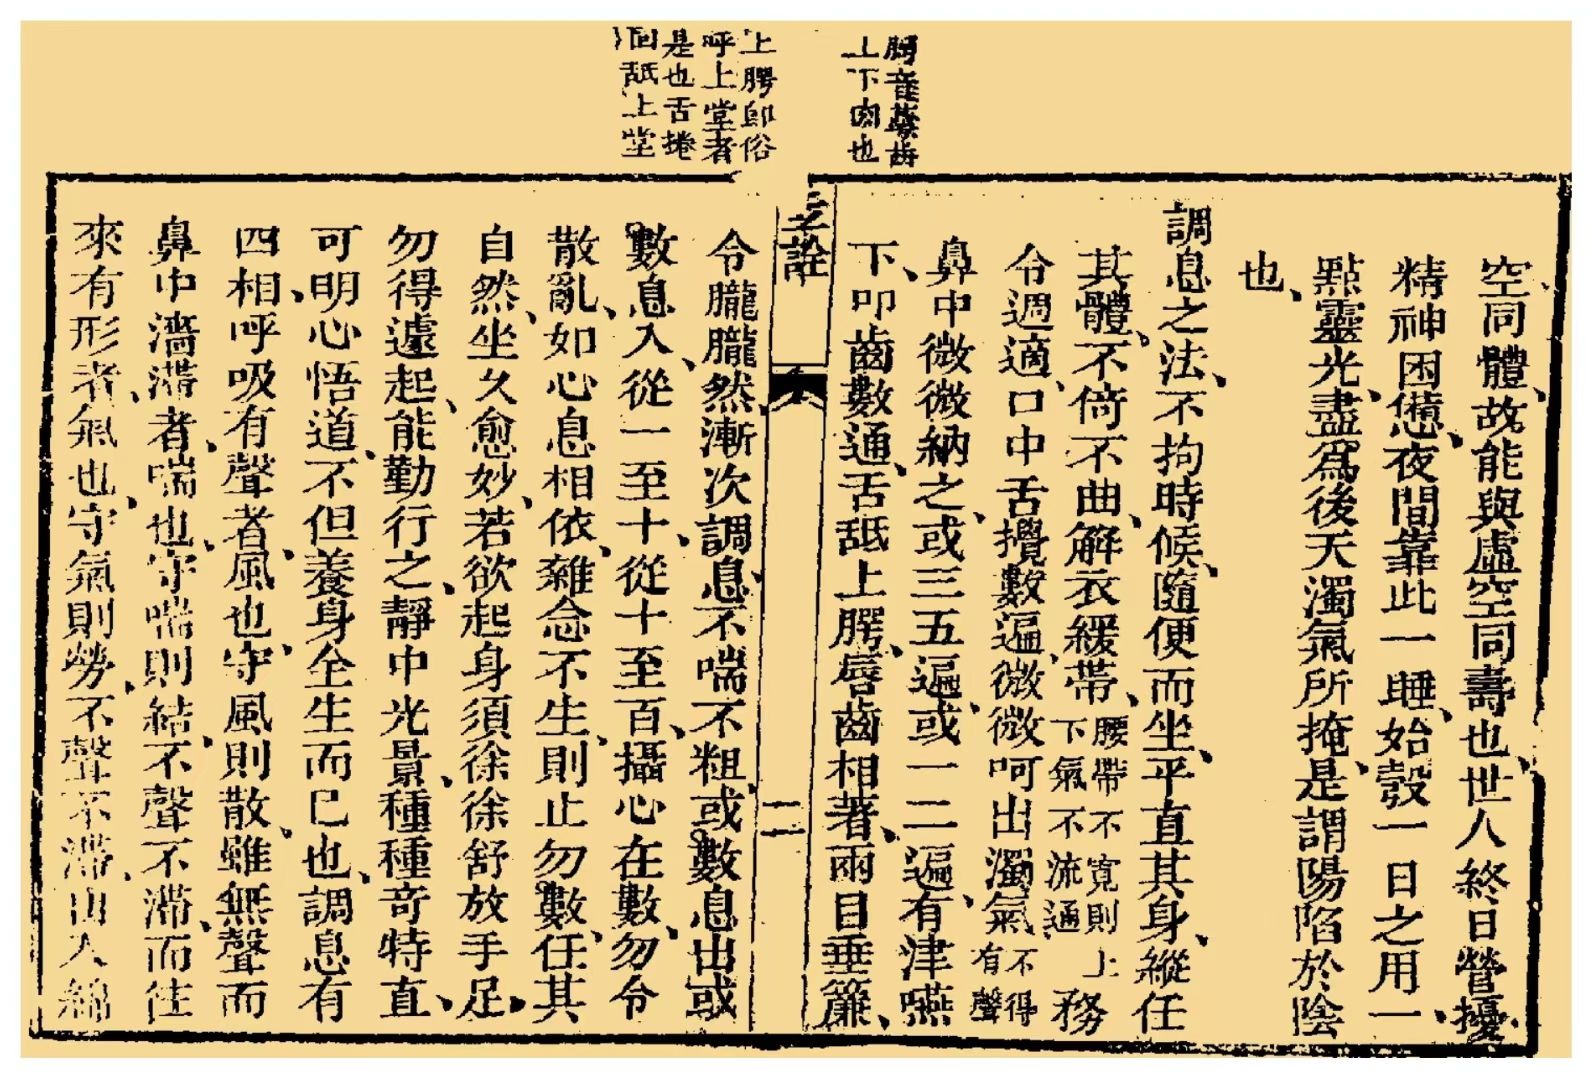 腭音萼齒
上下肉也
上腭卽俗
呼上堂者
是也舌捲
回舐上堂
空同體、故能與虛空同壽也、世人終日營擾、
精神困憊、夜間靠此一睡、始彀一日之用、一
點靈光、盡爲後天濁氣所掩、是謂陽陷於陰
也、
調息之法、不拘時候、隨便而坐、平直其身、縱任
其體、不倚不曲、解衣緩帶、腰帶不寬則上下氣不流通務
令週適、口中舌攪數遍、微微呵出濁氣不得有聲
鼻中微微納之、或三五遍、或一二遍、有津嚥
下、叩齒數通、舌舐上腭、唇齒相著、兩目垂簾、
詮
二
令朧朧然、漸次調息、不喘不粗、或數息出、或
數息入、從一至十、從十至百、攝心在數、勿令
散亂、如心息相依、雜念不生、則止勿數、任其
自然、坐久愈妙、若欲起身、須徐徐舒放手足、
勿得遽起、能勤行之、靜中光景、種種奇特、直
可明心悟道、不但養身全生而已也、調息有
四相、呼吸有聲者、風也、守風則散、雖無聲而
鼻中濇滯者、喘也、守喘則結、不聲不滯、而往
來有形者、氣也、守氣則勞、不聲不滯、出入綿